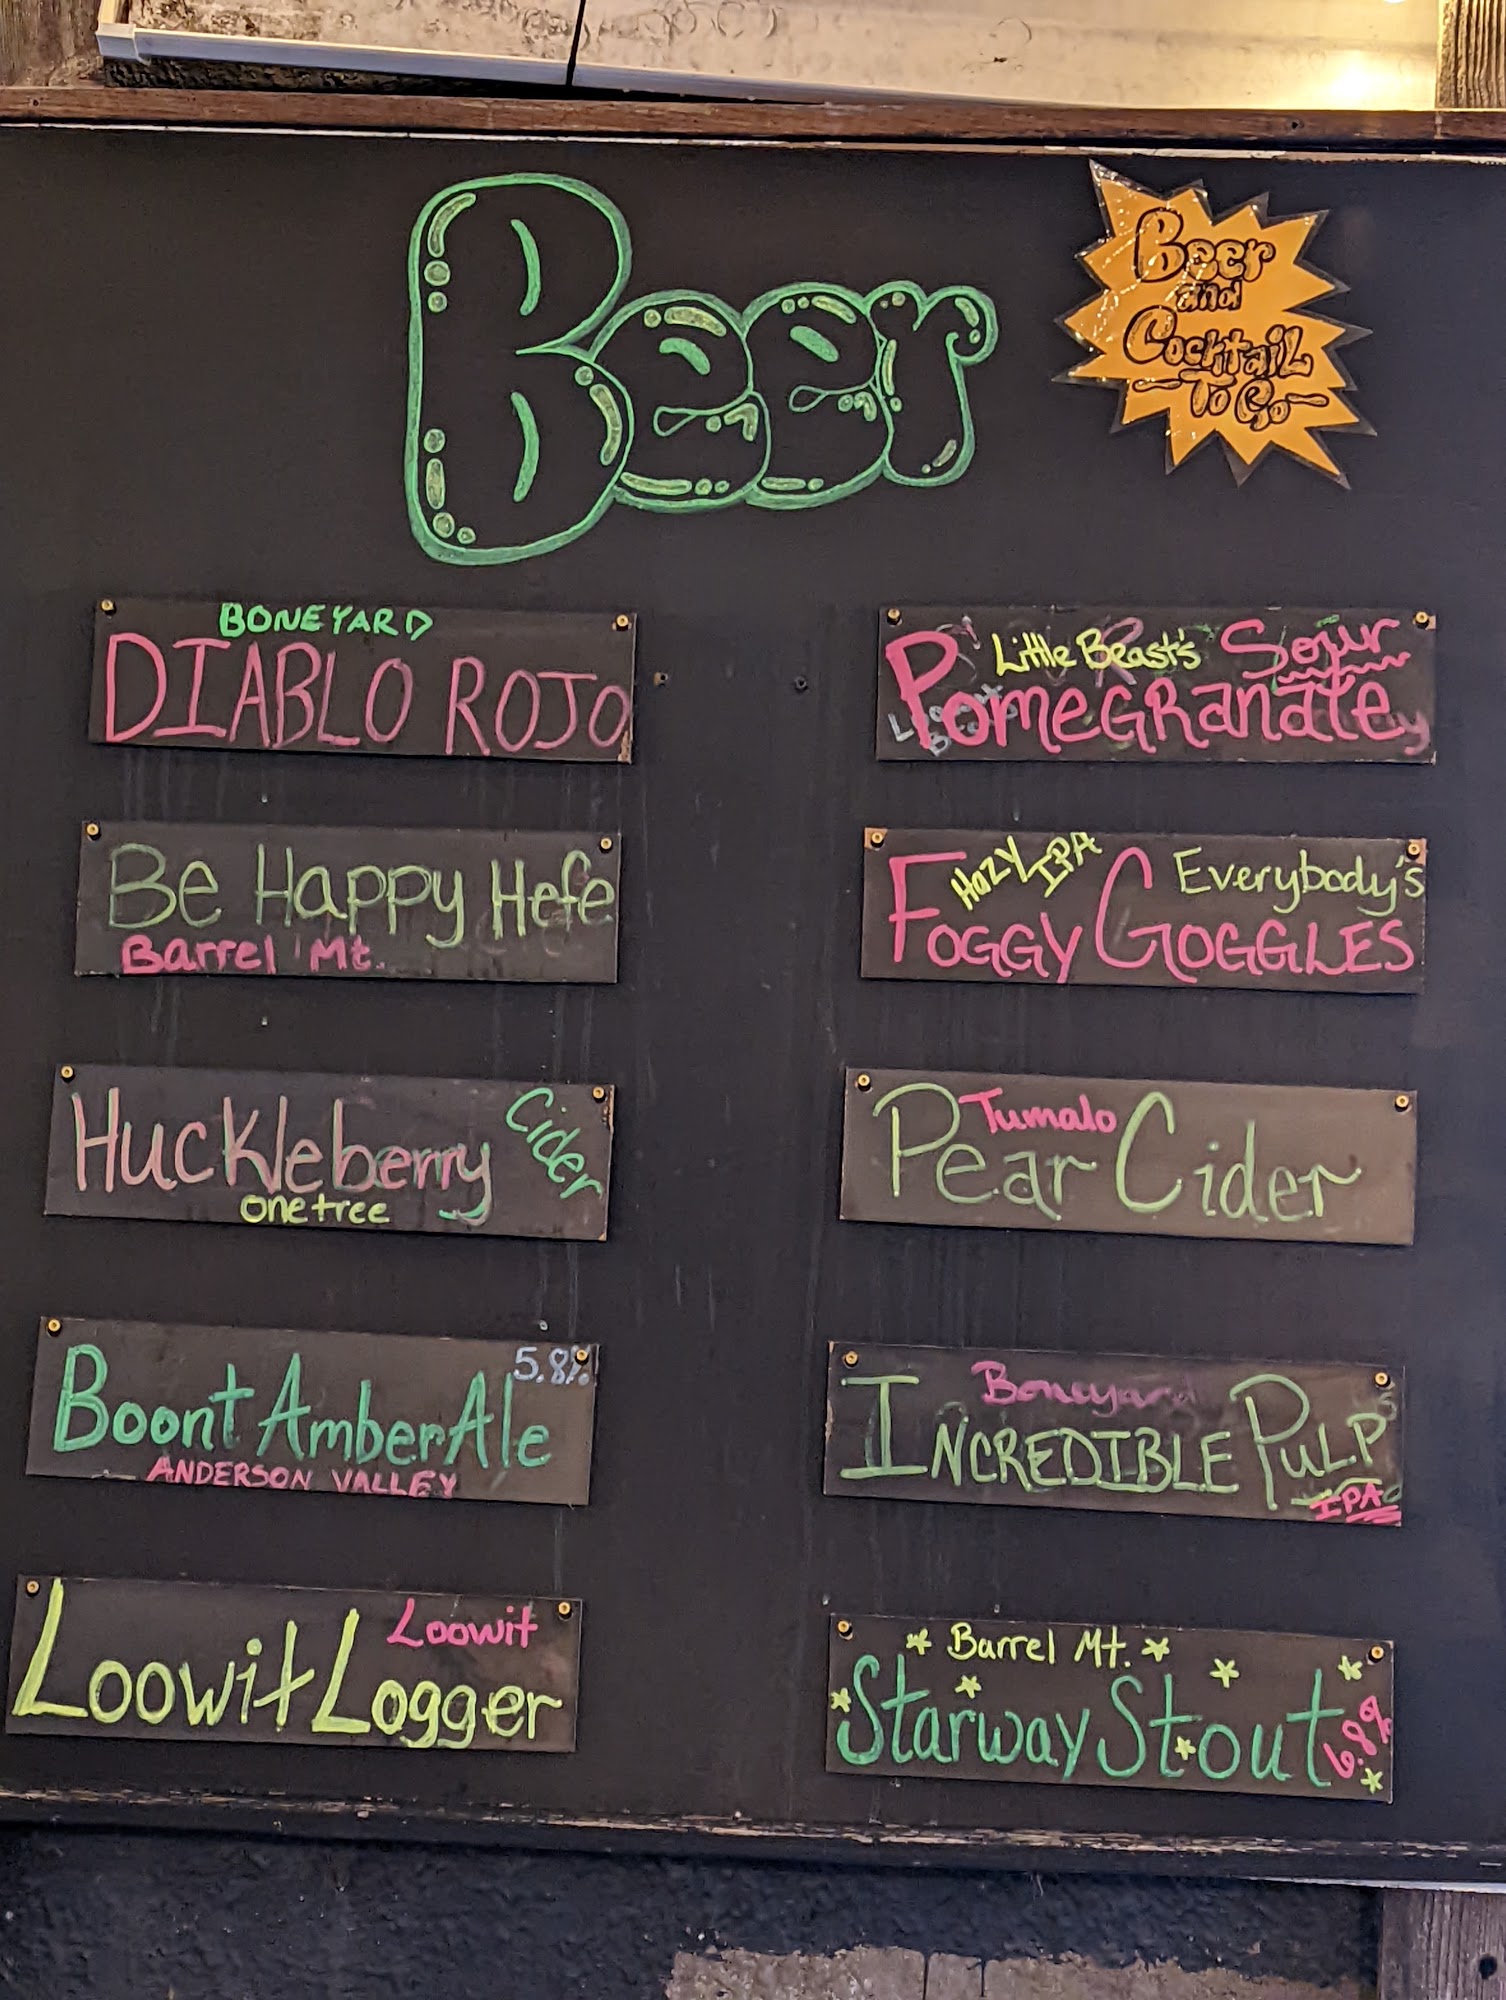 Beer
Beer
and
Cocktail
To Go
BONEYARD
DIABLO ROJO
Be Happy Hefe
Barrel Mt.
Huckleberry Cider
onetree
5.8%
Boont Amber Ale
ANDERSON VALLEY
Loowit
Loowit Logger
Little Beast's Sour
PomeGRanate
Hazy IPA Everybody's
FOGGY GOGGLES
Tumalo
Pear Cider
Boneyard
INCREDIBLE PULP
IPA
Barrel Mt.
Starway Stout 6.8%